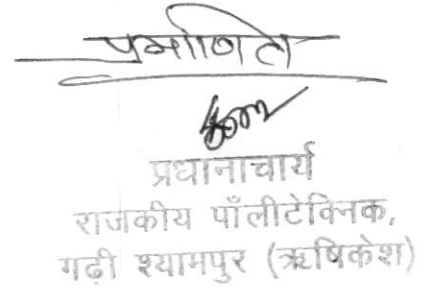 प्रमाणित
प्रधानाचार्य
राजकीय पाँलीटेक्निक,
गढ़ी श्यामपुर (ऋषिकेश)